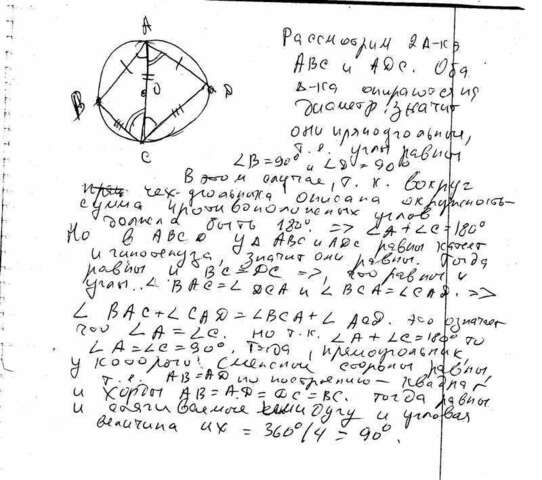 A
B
O
D
C
Рассмотрим 2 Δ-ка
ABC и ADC. Оба
Δ-ка опираются на
диаметр, значит
они прямоугольные,
т.е. углы равны
∠B=90° и ∠D=90°
В этом случае, т.к. вокруг
чех-угольника описана окружность
сумма противоположных углов
должна быть 180° => ∠A+∠C=180°
Но в ABCD у Δ ABC и ADC равны катет
и гипотенуза, значит они равны. Тогда
равны и BC=DC =>, то равны и
углы. ∠BAC=∠DCA и ∠BCA=∠CAD. =>
∠BAC+∠CAD=∠BCA+∠ACD. Это означает
что ∠A=∠C. Но т.к. ∠A+∠C=180° то
∠A=∠C=90°. Тогда, прямоугольник,
у которого смежные стороны равны,
т.е. AB=AD по построению - квадрат
и хорды AB=AD=DC=BC. Тогда равны
и стягиваемые ими дуги и угловая
величина их = 360°/4 = 90°.